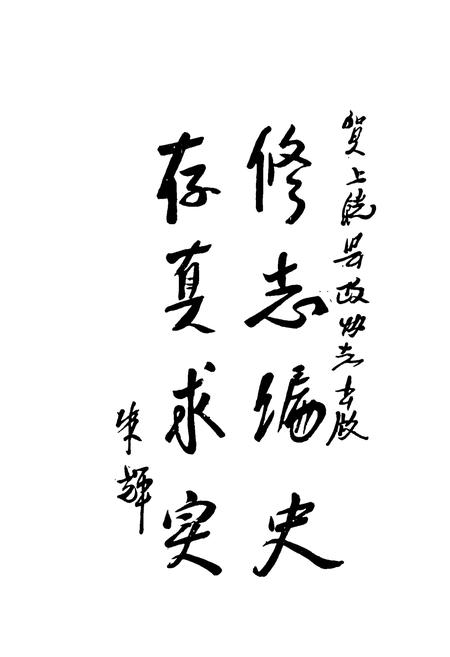 贺上饶县政协志出版
修志编史
存真求实
朱辉